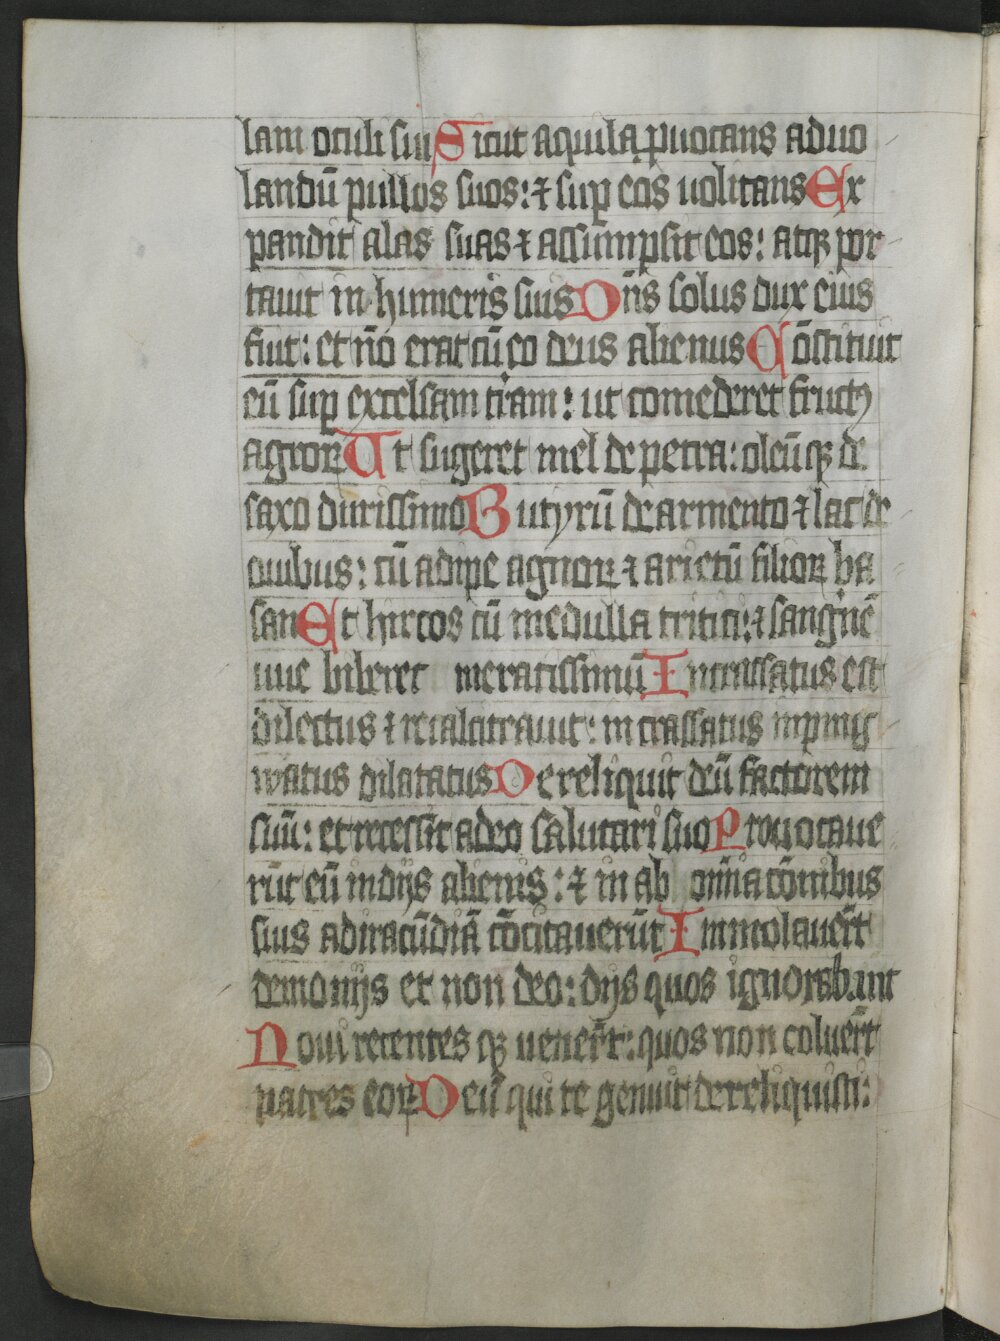 lam oculi sui Sicut aquila ꝓuocans aduo
landū pullos suos: ⁊ suꝑ eos uolitans Ex
pandit alas suas ⁊ assumpsit eos: atqꝫ por
tauit in humeris suis Dn̄s solus dux eius
fuit: et nō erat cū eo deus alienus Cōstituit
eū suꝑ excelsam tr̄am: ut comederet fructꝰ
agroꝝ Ut sugeret mel de petra: oleūqꝫ de
saxo durissimo Butyrū de armento ⁊ lac de
ouibus: cū adipe agnoꝝ ⁊ arietū filioꝝ ba
san Et hircos cū medulla tritici: ⁊ sanguinē
uue biberet meracissimū Incrassatus est
dilectus ⁊ recalcitrauit: incrassatus inping
watus dilatatus Dereliquit deū factorem
suū: et recessit a deo salutari suo Prouocaue
rūt eū in dijs alienis: ⁊ in ab omīnaciōnibus
suis ad iracūdiā cōcitauerūt Immolauer̄t
demonijs et non deo: dijs quos ignorabant
Noui recentes qꝫ uener̄t: quos non coluer̄t
patres eoꝝ Deū qui te genuit dereliquisti: